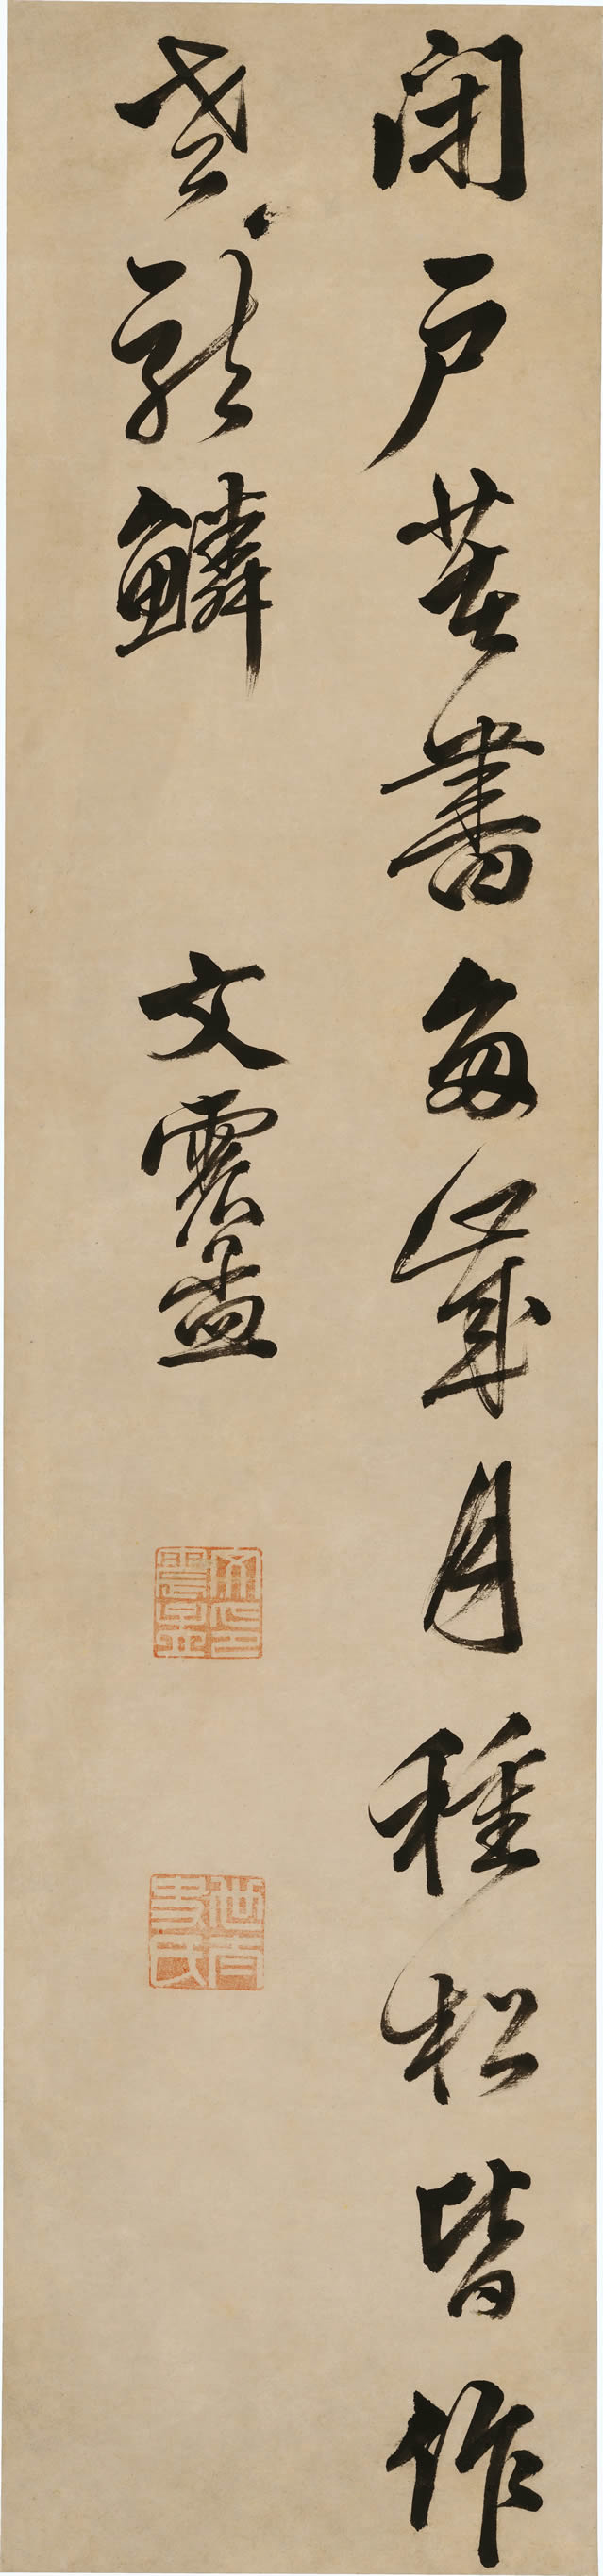 閉戶著書多歲月種松皆作
老龍鱗 文震孟
文震孟印